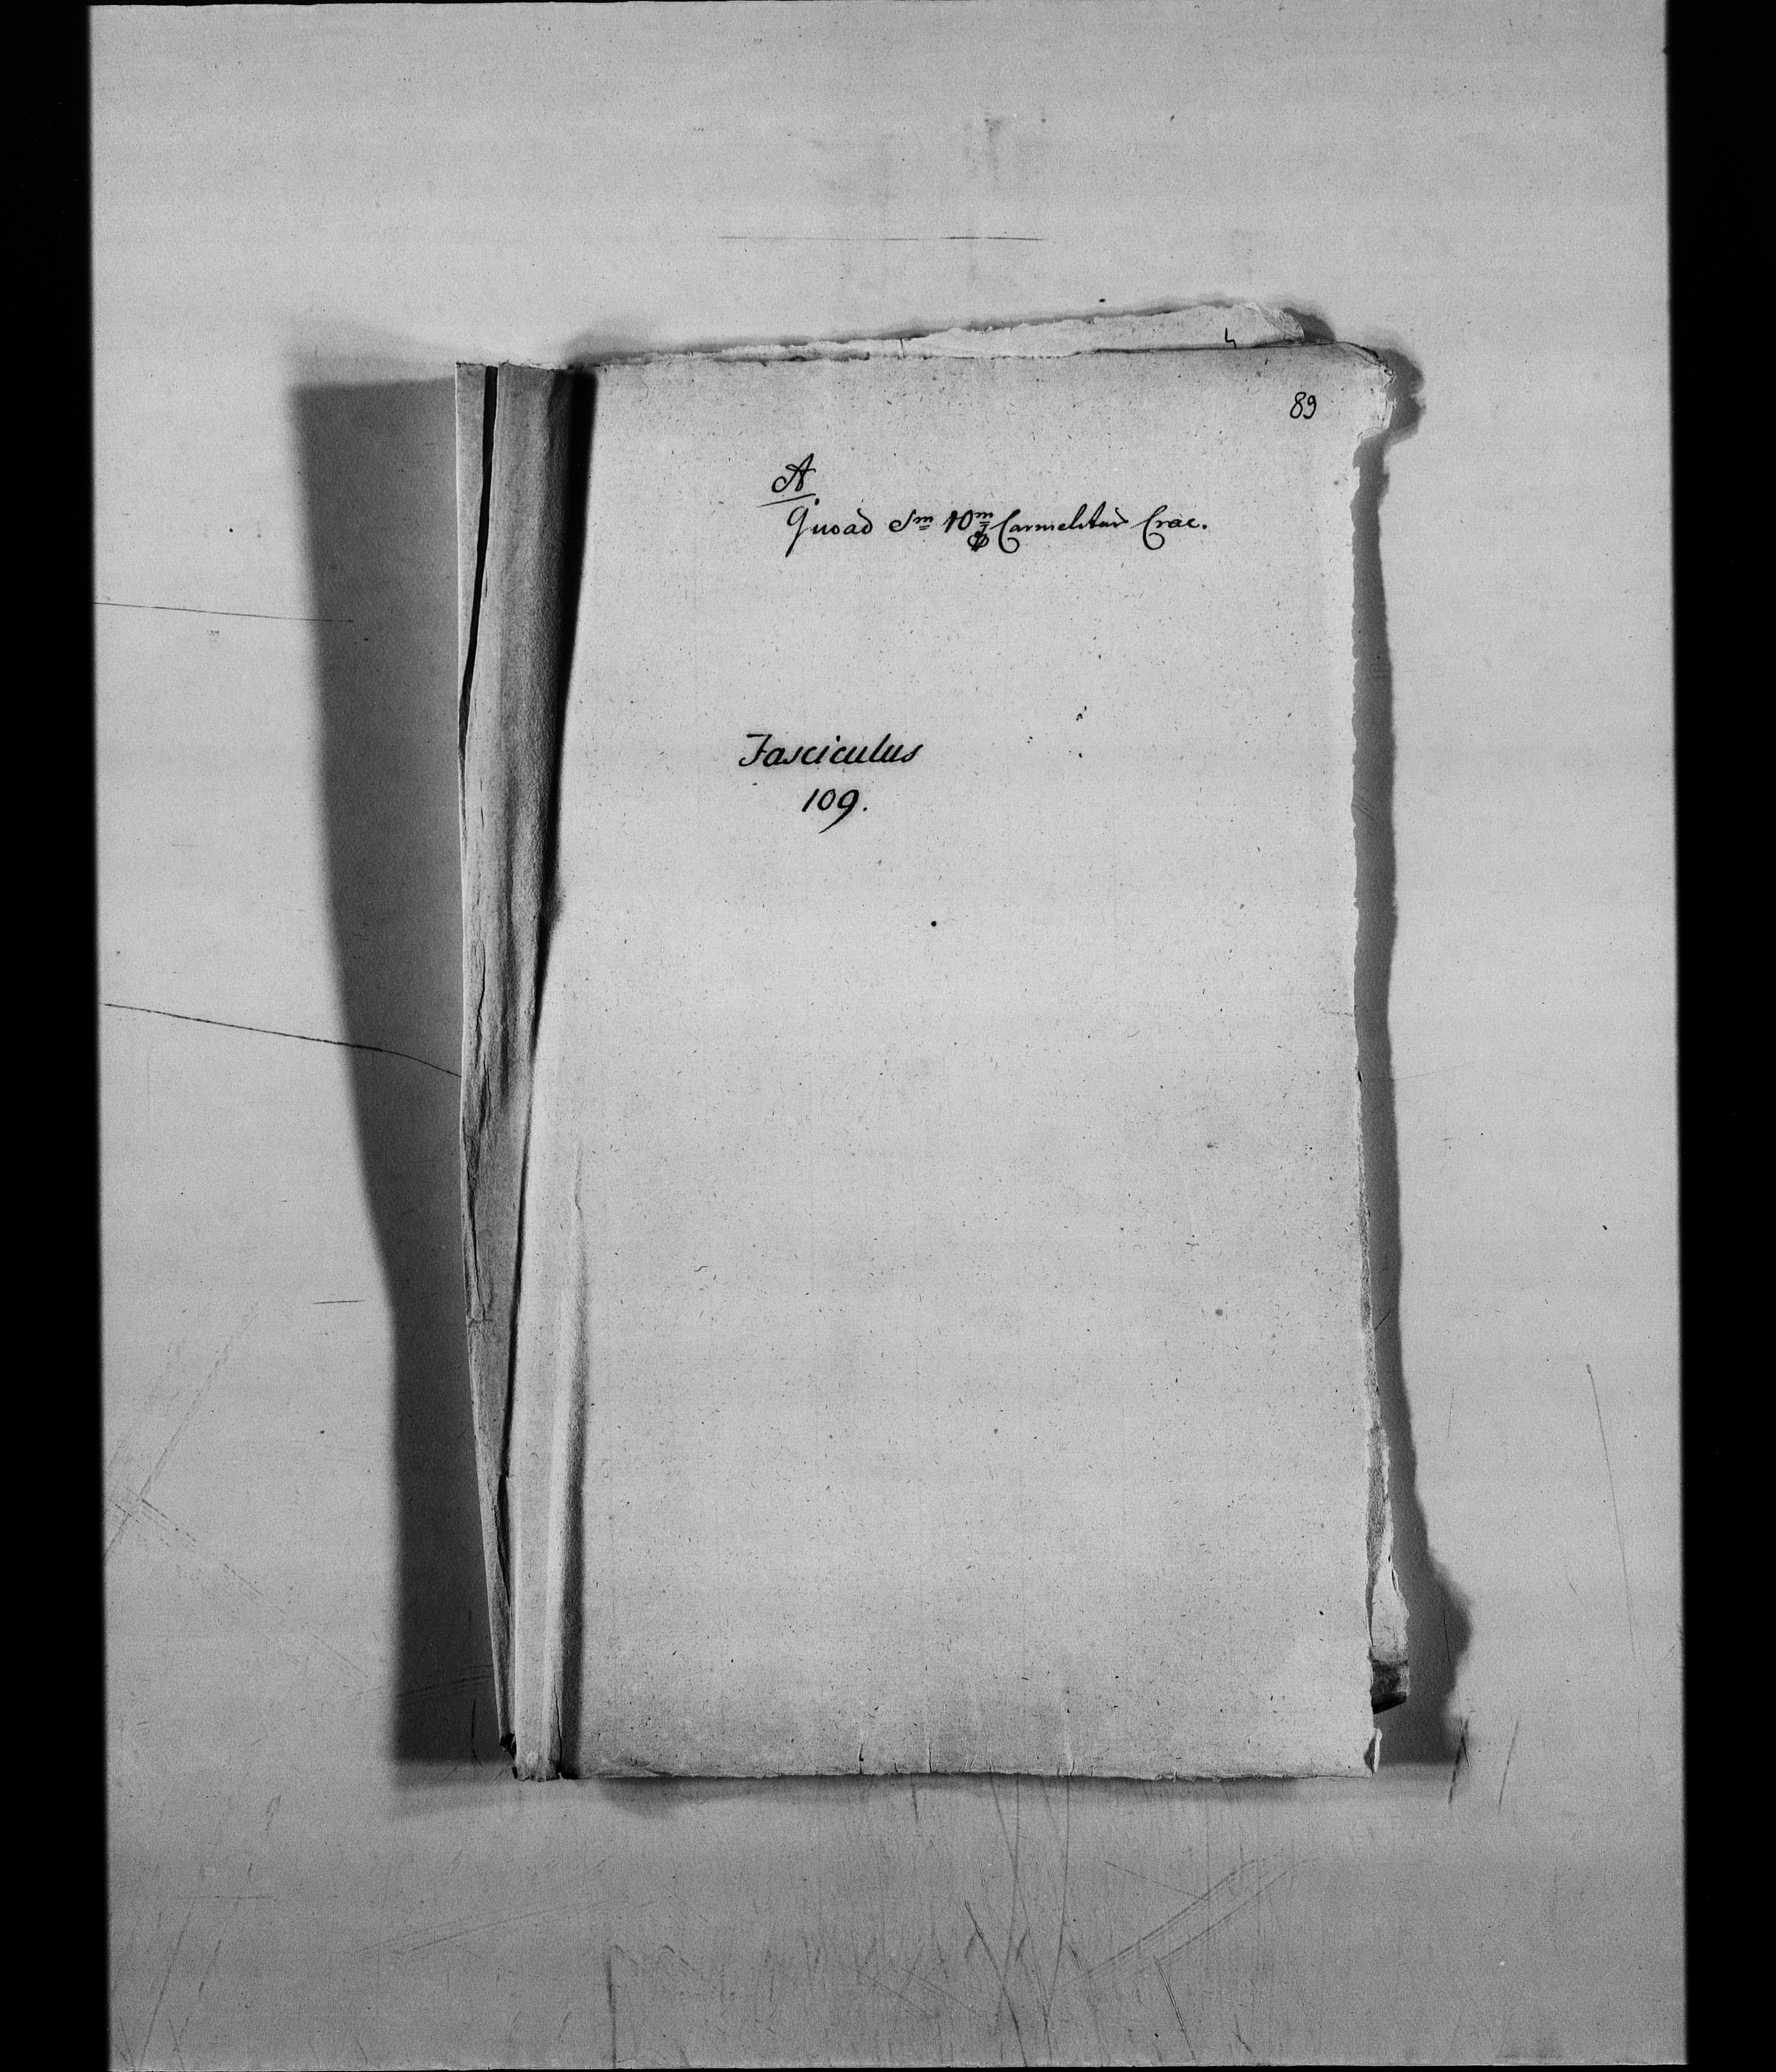 89
A
Quoad Sm 10m Carmelitas Crac.
Fasciculus
109.